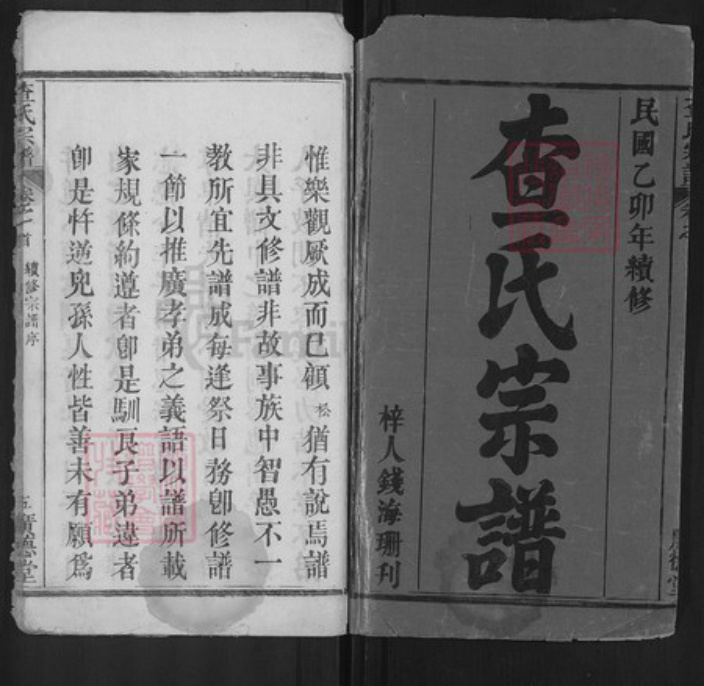 民國乙卯年續修
查氏宗譜
梓人錢海珊刊
惟樂觀厥成而已顧松猶有說焉譜
非具文修譜非故事族中智愚不一
教所宜先譜成每逢祭日務卽修譜
一節以推廣孝弟之義語以譜所載
家規條約遵者卽是馴良子弟違者
卽是忤逆兇孫人性皆善未有願爲
查氏宗譜
卷之一首 續修宗譜序
五